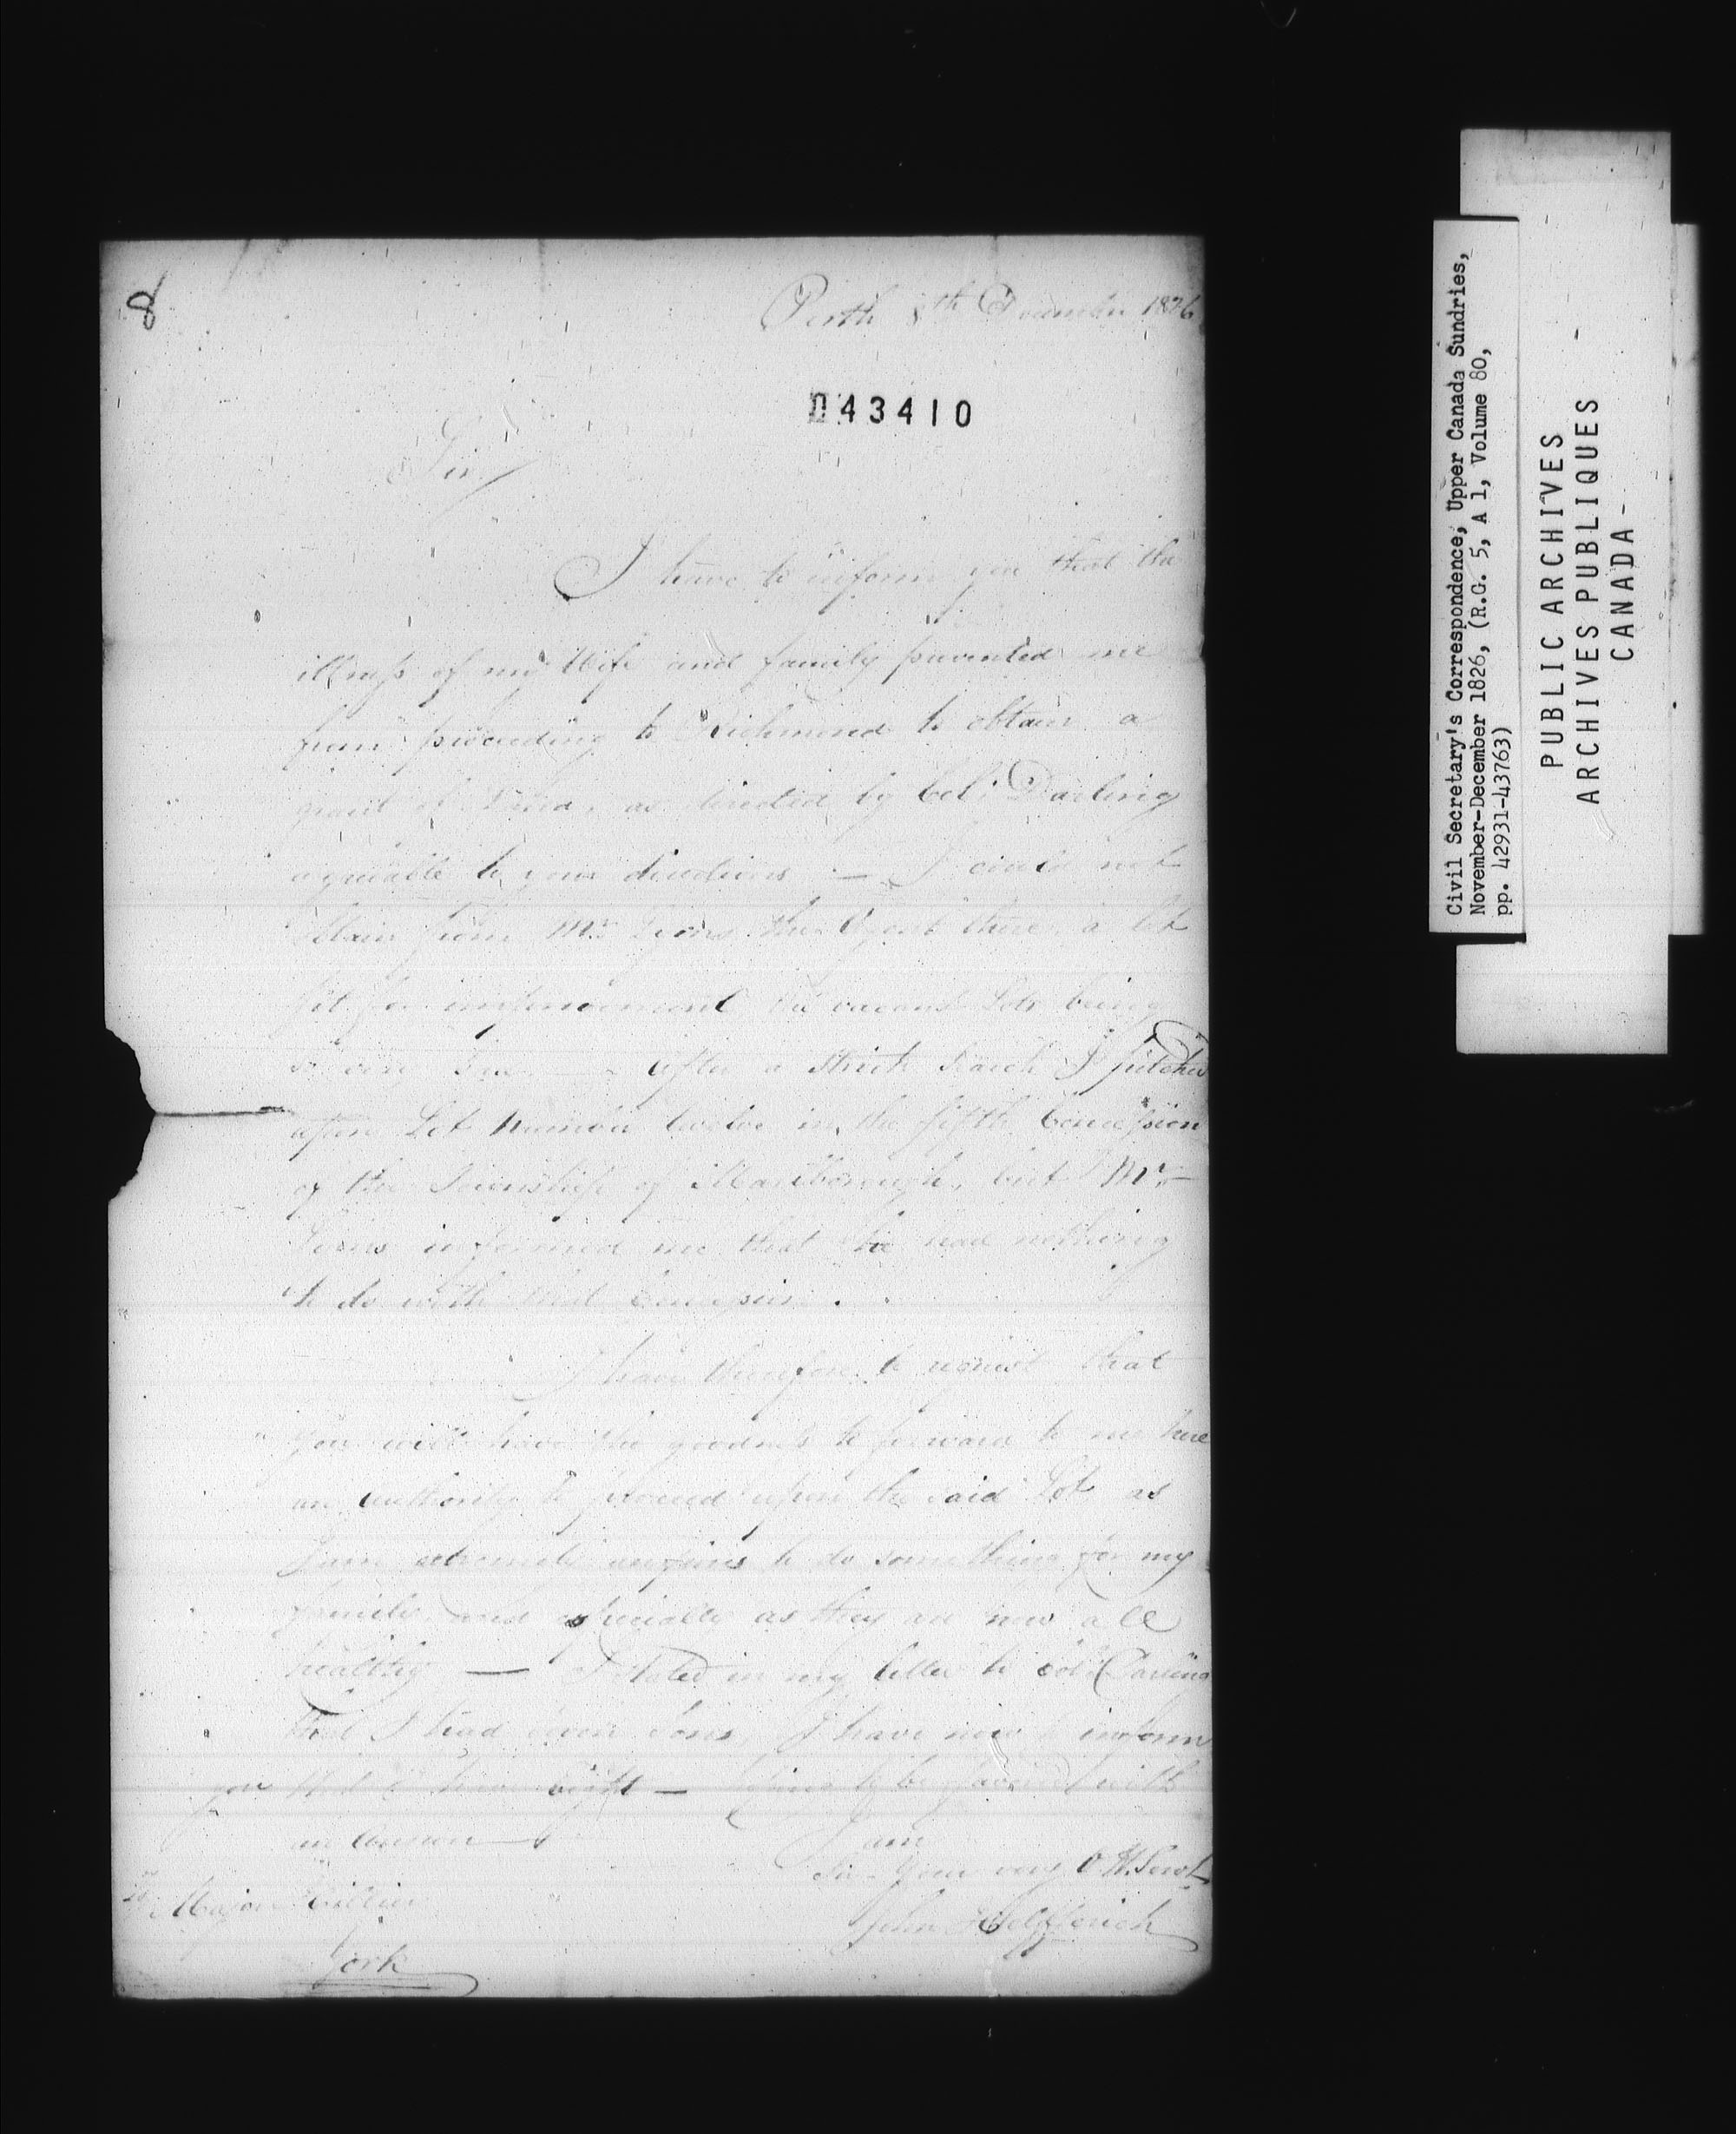 8
Perth 8th December 1826
043410
Sir/
I have to inform you that the
illness of my Wife and family prevented me
from proceeding to Richmond to obtain a
grant of Land, as directed by Col. Darling
agreeable to your directions — I could not
obtain from Mr. Lyons the Agent there, a lot
fit for improvement the vacant Lots being
so very few — After a strict search I pitched
upon Lot Number twelve in the fifth Concession
of the Township of Marlborough, but Mr.
Lyons informed me that he had nothing
to do with that Concession.
I have therefore to request that
you will have the goodness to forward to me here
an authority to proceed upon the said Lot as
I am extremely anxious to do something for my
family and especially as they are now all
healthy — I stated in my letter to Col. Darling
that I had seven Sons, I have now to inform
you that I have eight — hoping to be favored with
an Answer —
I am
Sir Your very O. H. Servt.
John
Major Hillier
York
Civil Secretary's Correspondence, Upper Canada Sundries,
November-December 1826, (R.G. 5, A 1, Volume 80,
pp. 42931-43763)
PUBLIC ARCHIVES
ARCHIVES PUBLIQUES
CANADA